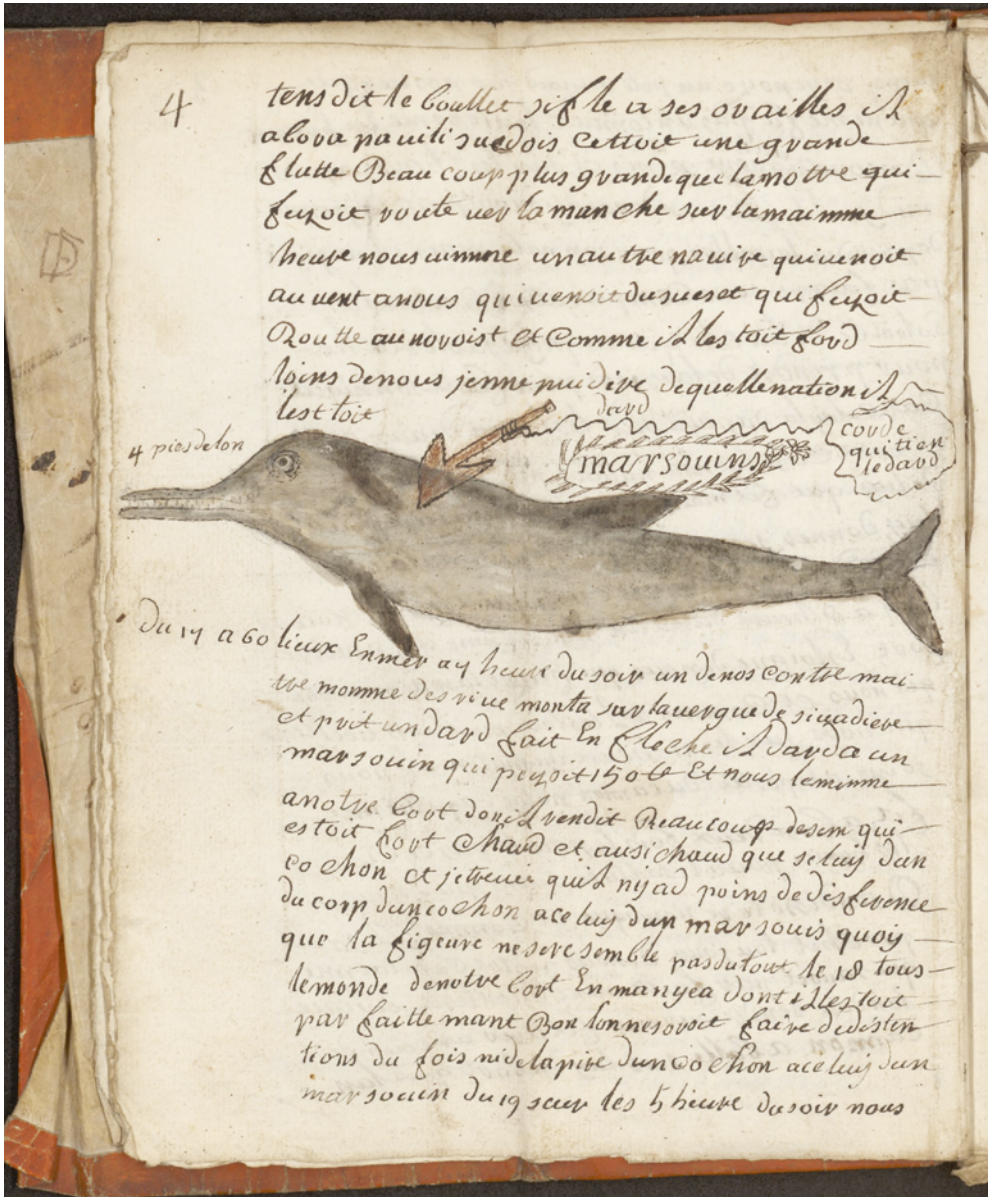 4
tens dit le boullet sifle a ses orailles il
abora pavili suedois cettoit une grande
flutte Beaucoup plus grande que la nottre qui
fezoit route ver la manche sur la maimme
heure nous vimme un autre navire qui venoit
au vent a nous qui venoit du sues et qui fezoit
Routte au noroist et Comme il lestoit ford
loins de nous jenne puidire de quelle nation il
lestoit
dard
corde
qui tien
le dard
marsouins
4 pies de lon
Du 17 a 60 lieux En mer a 7 heure du soir un denos contre mai
tre nomme des rive monta sur la vergue de sivadiere
et prit un dard fait En fleche il darda un
marsouin qui pezoit 150 lb Et nous le mimme
a notre bort don il rendit Beaucoup de sem qui
estoit fort chaud et ausi chaud que seluy dun
cochon et je trouvé quil nyad poins de disference
du corp dun cochon a celuy dun marsouis quoy
que la figeure ne sere semble pas du tout le 18 tous
le monde de notre bort En mangea dont il lestoit
parfaittemant Bon lonne soroit faire de disten
tions du fois ni de la pire dun cochon a celuy dun
marsouin du 19 sur les 5 heure du soir nous